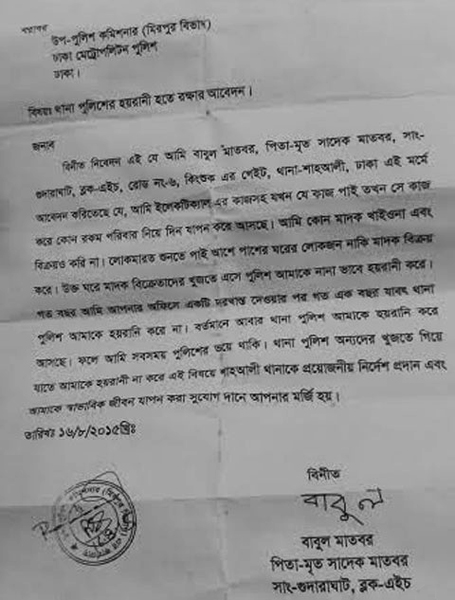 বরাবর
উপ-পুলিশ কমিশনার (মিরপুর বিভাগ)
ঢাকা মেট্রোপলিটন পুলিশ
ঢাকা।
বিষয়ঃ থানা পুলিশের হয়রানী হতে রক্ষার আবেদন।
জনাব
বিনীত নিবেদন এই যে আমি বাবুল মাতবর, পিতা-মৃত সাদেক মাতবর, সাং-
গুদারাঘাট, ব্লক-এইচ, রোড নং-৬, কিংশুক এর গেইট, থানা-শাহআলী, ঢাকা এই মর্মে
আবেদন করিতেছে যে, আমি ইলেকটিক্যাল এর কাজসহ যখন যে কাজ পাই তখন সে কাজ
করে কোন রকম পরিবার নিয়ে দিন যাপন করে আসছে। আমি কোন মাদক খাইওনা এবং
বিক্রয়ও করি না। লোকমারত শুনতে পাই আশে পাশের ঘরের লোকজন নাকি মাদক বিক্রয়
করে। উক্ত ঘরে মাদক বিক্রেতাদের খুজতে এসে পুলিশ আমাকে নানা ভাবে হয়রানী করে।
গত বছর আমি আপনার অফিসে একটি দরখাস্ত দেওয়ার পর গত এক বছর যাবৎ থানা
পুলিশ আমাকে হয়রানি করে না। বর্তমানে আবার থানা পুলিশ আমাকে হয়রানি করে
আসছে। ফলে আমি সবসময় পুলিশের ভয়ে থাকি। থানা পুলিশ অন্যদের খুজতে গিয়ে
যাতে আমাকে হয়রানী না করে এই বিষয়ে শাহআলী থানাকে প্রয়োজনীয় নির্দেশ প্রদান এবং
আমাকে স্বাভাবিক জীবন যাপন করা সুযোগ দানে আপনার মর্জি হয়।
তারিখঃ ১৬/৮/২০১৫খ্রিঃ
বিনীত
বাবুল
বাবুল মাতবর
পিতা-মৃত সাদেক মাতবর
সাং-গুদারাঘাট, ব্লক-এইচ